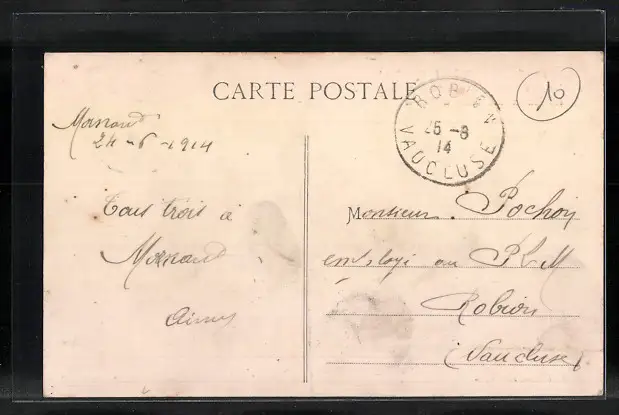 CARTE POSTALE
ROBION
25-8
14
VAUCLUSE
10
Mornand
24-6-1914
Tous trois à
Mornand
Monsieur Pochoy
employé au PLM
Robion
(Vaucluse)